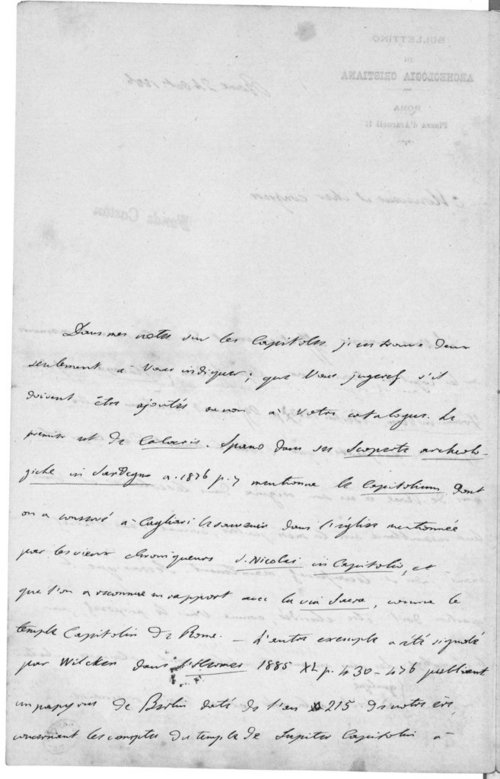 BULLETTINO
DI
ARCHEOLOGIA CRISTIANA
ROMA
Piazza d'Aracoeli
Monsieur et cher
Dans mes notes sur les Capitoles j'en trouve deux
seulement à Vous indiquer; que Vous jugerez s'il
doivent êtes ajoutés ou non à votre catalogue. Le
premier est de Calaris. Spano dans ses Scoperte archeolo-
giche in Sardegna a. 1876 p. 7 mentionne le Capitolium, dont
on a conservé à Cagliari le souvenir dans l'église mentionnée
par les vieux chroniqueurs S. Nicolai in Capitolio, et
que l'on a reconnue en rapport avec la via Sacra, comme le
temple Capitolin de Rome. — L'autre exemple a été signalé
par Wilcken dans l'Hermes 1885 XX p. 430-476 publiant
un papyrus de Berlin daté de l'an 215 de notre ère,
concernant les comptes du temple de Jupiter Capitolin à